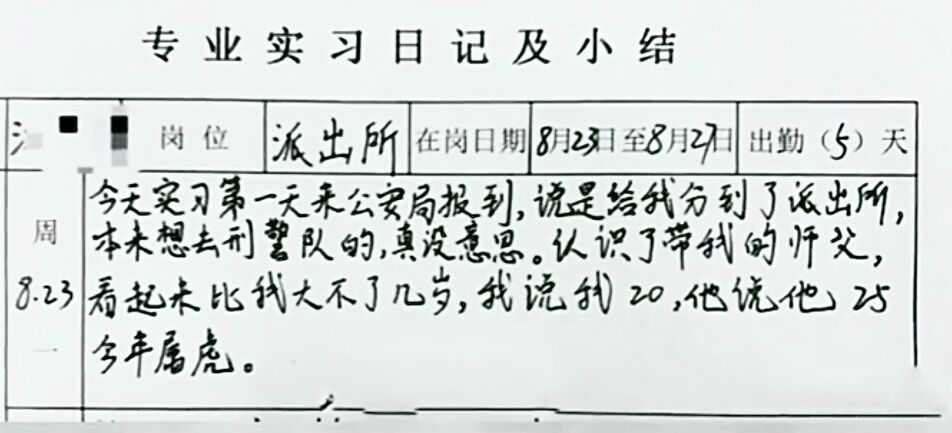 专业实习日记及小结
岗位 派出所 在岗日期 8月23日至8月27日 出勤（5）天
周一
8.23
今天实习第一天来公安局报到，说是给我分到了派出所，
本来想去刑警队的，真没意思。认识了带我的师父，
看起来比我大不了几岁，我说我20，他说他25
今年属虎。